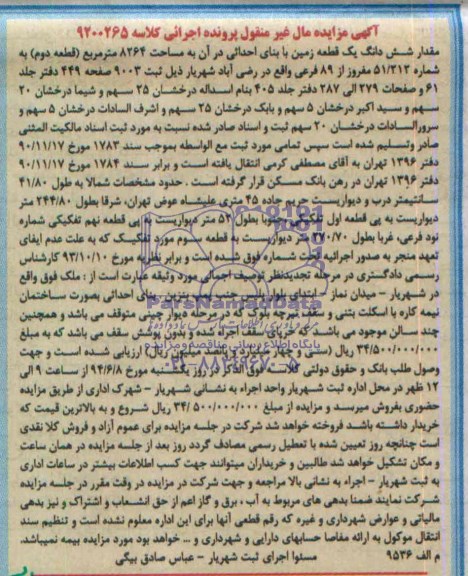 آگهی مزایده مال غیر منقول پرونده اجرائی کلاسه ۹۲۰۰۲۶۵
مقدار شش دانگ یک قطعه زمین با بنای احداثی در آن به مساحت ۸۲۶۴ مترمربع (قطعه دوم) به
شماره ۵۱/۳۱۳ مفروز از ۸۹ فرعی واقع در رضی آباد شهریار ذیل ثبت ۹۰۰۳ صفحه ۴۴۹ دفتر جلد
۶۱ و صفحات ۲۷۹ الی ۲۸۷ دفتر جلد ۴۰۵ بنام اسداله درخشان ۲۵ سهم و شیما درخشان ۲۰
سهم و سید اکبر درخشان ۵ سهم و بابک درخشان ۲۵ سهم و اشرف السادات درخشان ۵ سهم و
سرورالسادات درخشان ۲۰ سهم ثبت و اسناد صادر شده نسبت به مورد ثبت اسناد مالکیت المثنی
صادر وتسلیم شده است سپس تمامی مورد ثبت مع الواسطه بموجب سند ۱۷۸۳ مورخ ۹۰/۱۱/۱۷
دفتر ۱۳۹۶ تهران به آقای مصطفی کرمی انتقال یافته است و برابر سند ۱۷۸۴ مورخ ۹۰/۱۱/۱۷
دفتر ۱۳۹۶ تهران در رهن بانک مسکن قرار گرفته است . حدود مشخصات شمالا به طول ۴۱/۸۰
سانتیمتر درب و دیواریست حریم جاده ۴۵ متری علیشاه عوض تهران، شرقا بطول ۲۴۴/۸۰ متر
دیواریست به پی قطعه اول تفکیکی جنوبا بطول ۵۴ متر دیواریست به پی قطعه نهم تفکیکی شماره
نود فرعی، غربا بطول ۱۷۰/۷۰ متر دیواریست به قطعه سوم مورد تفکیک که به علت عدم ایفای
تعهد منجر به صدور اجرائیه تحت شماره فوق شده است و برابر نظریه مورخ ۹۳/۱۰/۱۰ کارشناس
رسمی دادگستری در مرحله تجدیدنظر توصیف اجمالی مورد وثیقه عبارت است از : ملک فوق واقع
در شهریار - میدان نماز - ابتدای بلوار جنب پمپ بنزین بنای احداثی بصورت ساختمان
نیمه کاره با اسکلت بتنی و سقف تیرچه بلوک که در مرحله دیوار چینی متوقف می باشد و همچنین
چند سالن موجود می باشد که خرپای سقف اجرا شده و بدون پوشش سقف می باشد که به مبلغ
۳۴/۵۰۰/۰۰۰/۰۰۰ ریال (سی و چهار میلیارد و پانصد میلیون ریال) ارزیابی شده است و جهت
وصول طلب بانک و حقوق دولتی کلاسه فوق الذکر در روز یکشنبه مورخ ۹۴/۶/۸ از ساعت ۹ الی
۱۲ ظهر در محل اداره ثبت شهریار واحد اجراء به نشانی شهریار - شهرک اداری از طریق مزایده
حضوری بفروش میرسد و مزایده از مبلغ ۳۴/۵۰۰/۰۰۰/۰۰۰ ریال شروع و به بالاترین قیمت که
خریدار داشته باشد فروخته خواهد شد شرکت در جلسه مزایده برای عموم آزاد و فروش کلا نقدی
است چنانچه روز تعیین شده با تعطیل رسمی مصادف گردد روز بعد از جلسه مزایده در همان ساعت
و مکان تشکیل خواهد شد طالبین و خریداران میتوانند جهت کسب اطلاعات بیشتر در ساعات اداری
به ثبت شهریار - اجراء به نشانی بالا مراجعه و جهت شرکت در مزایده در وقت مقرر در جلسه مزایده
شرکت نمایند ضمنا بدهی های مربوط به آب ، برق و گاز اعم از حق انشعاب و اشتراک و نیز بدهی
مالیاتی و عوارض شهرداری و غیره که رقم قطعی آنها برای این اداره معلوم نشده است و تنظیم سند
انتقال موکول به ارائه مفاصا حسابهای دارایی و شهرداری و ... خواهد بود مورد مزایده بیمه نمیباشد.
م الف ۹۵۳۶ مسئول اجرای ثبت شهریار - عباس صادق بیگی
ParsNamadData
پایگاه اطلاع رسانی مناقصه و مزایده